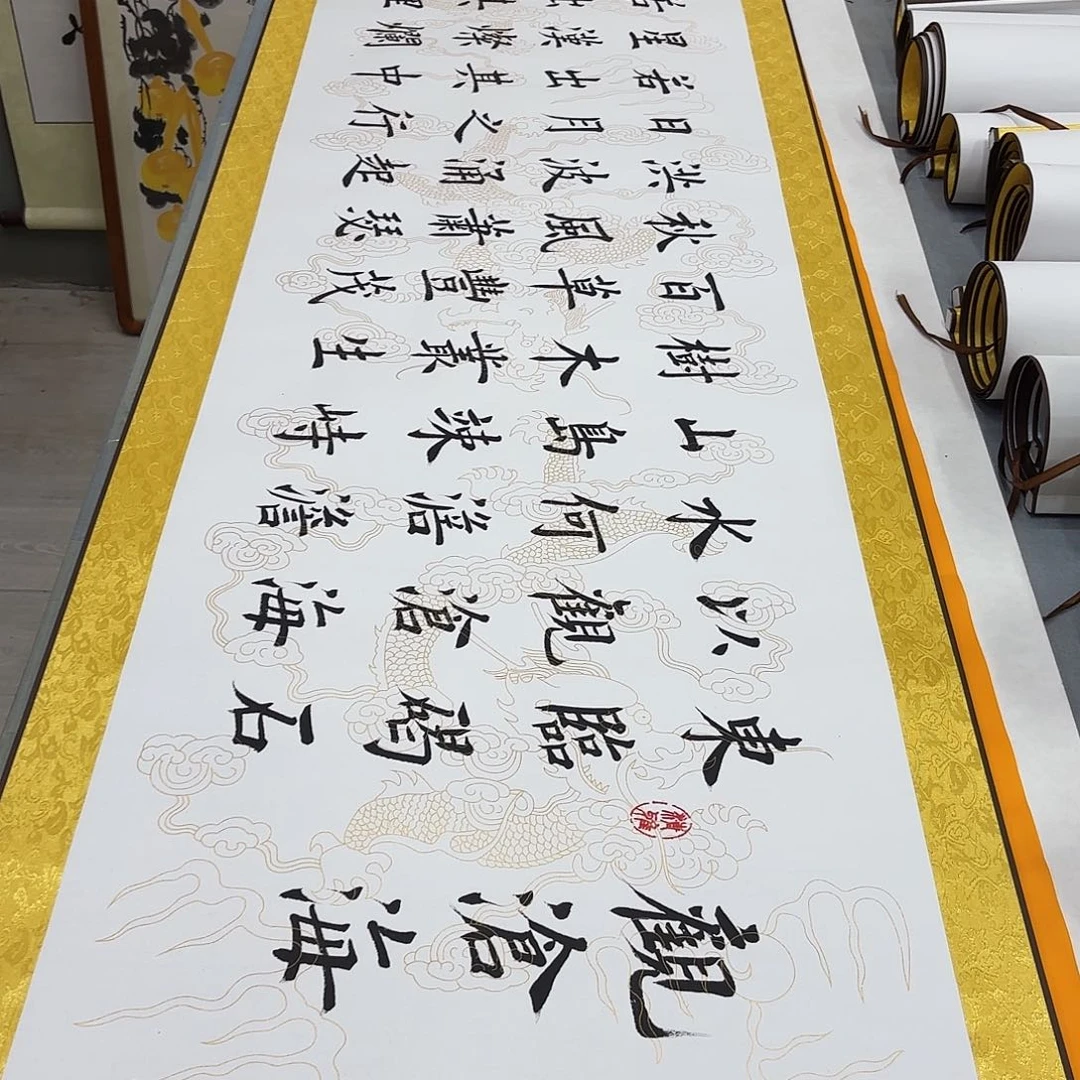 觀滄海
東臨碣石
以觀滄海
水何澹澹
山島竦峙
樹木叢生
百草豐茂
秋風蕭瑟
洪波涌起
日月之行
若出其中
星漢燦爛
若出其里